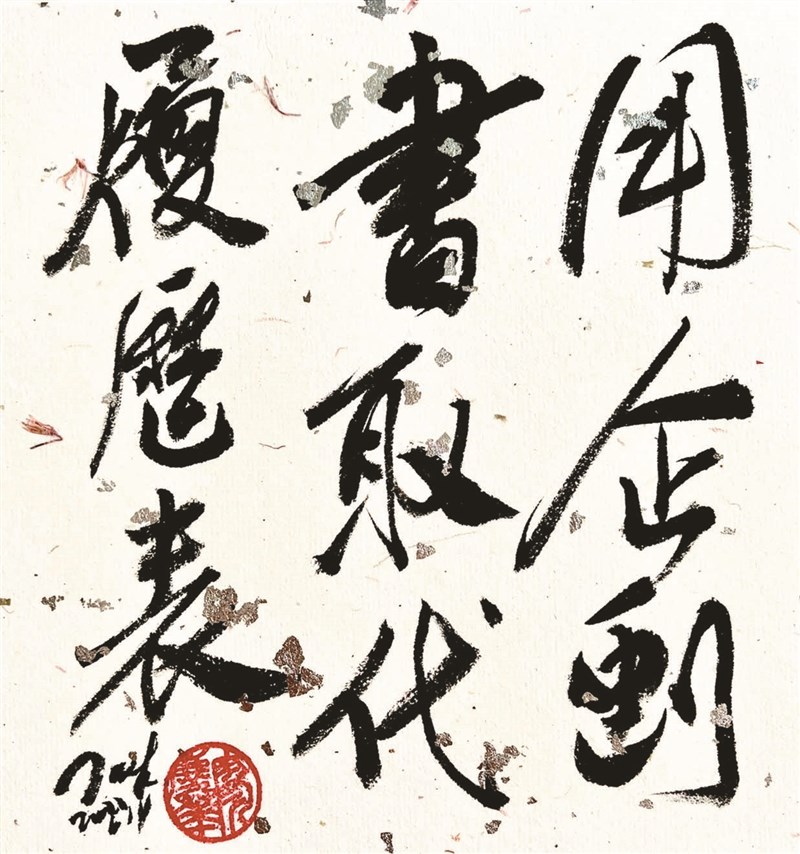 用企劃
書取代
履歷表